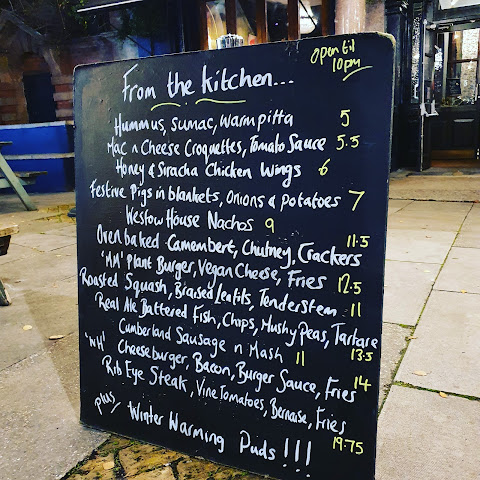 Open til
10pm
From the kitchen...
Hummus, Sumac, Warm pitta 5
Mac n Cheese Croquettes, Tomato Sauce 5.5
Honey & Siracha Chicken Wings 6
Festive Pigs in blankets, Onions & Potatoes 7
Westow House Nachos 9
Oven baked Camembert, Chutney, Crackers 11.5
'MM' Plant Burger, Vegan Cheese, Fries 12.5
Roasted Squash, Braised Lentils, Tenderstem 11
Real Ale Battered Fish, Chips, Mushy Peas, Tartare 13.5
Cumberland Sausage n Mash 11
'WH' Cheeseburger, Bacon, Burger Sauce, Fries 14
Rib Eye Steak, Vine Tomatoes, Bernaise, Fries 19.75
plus Winter Warming Puds!!!